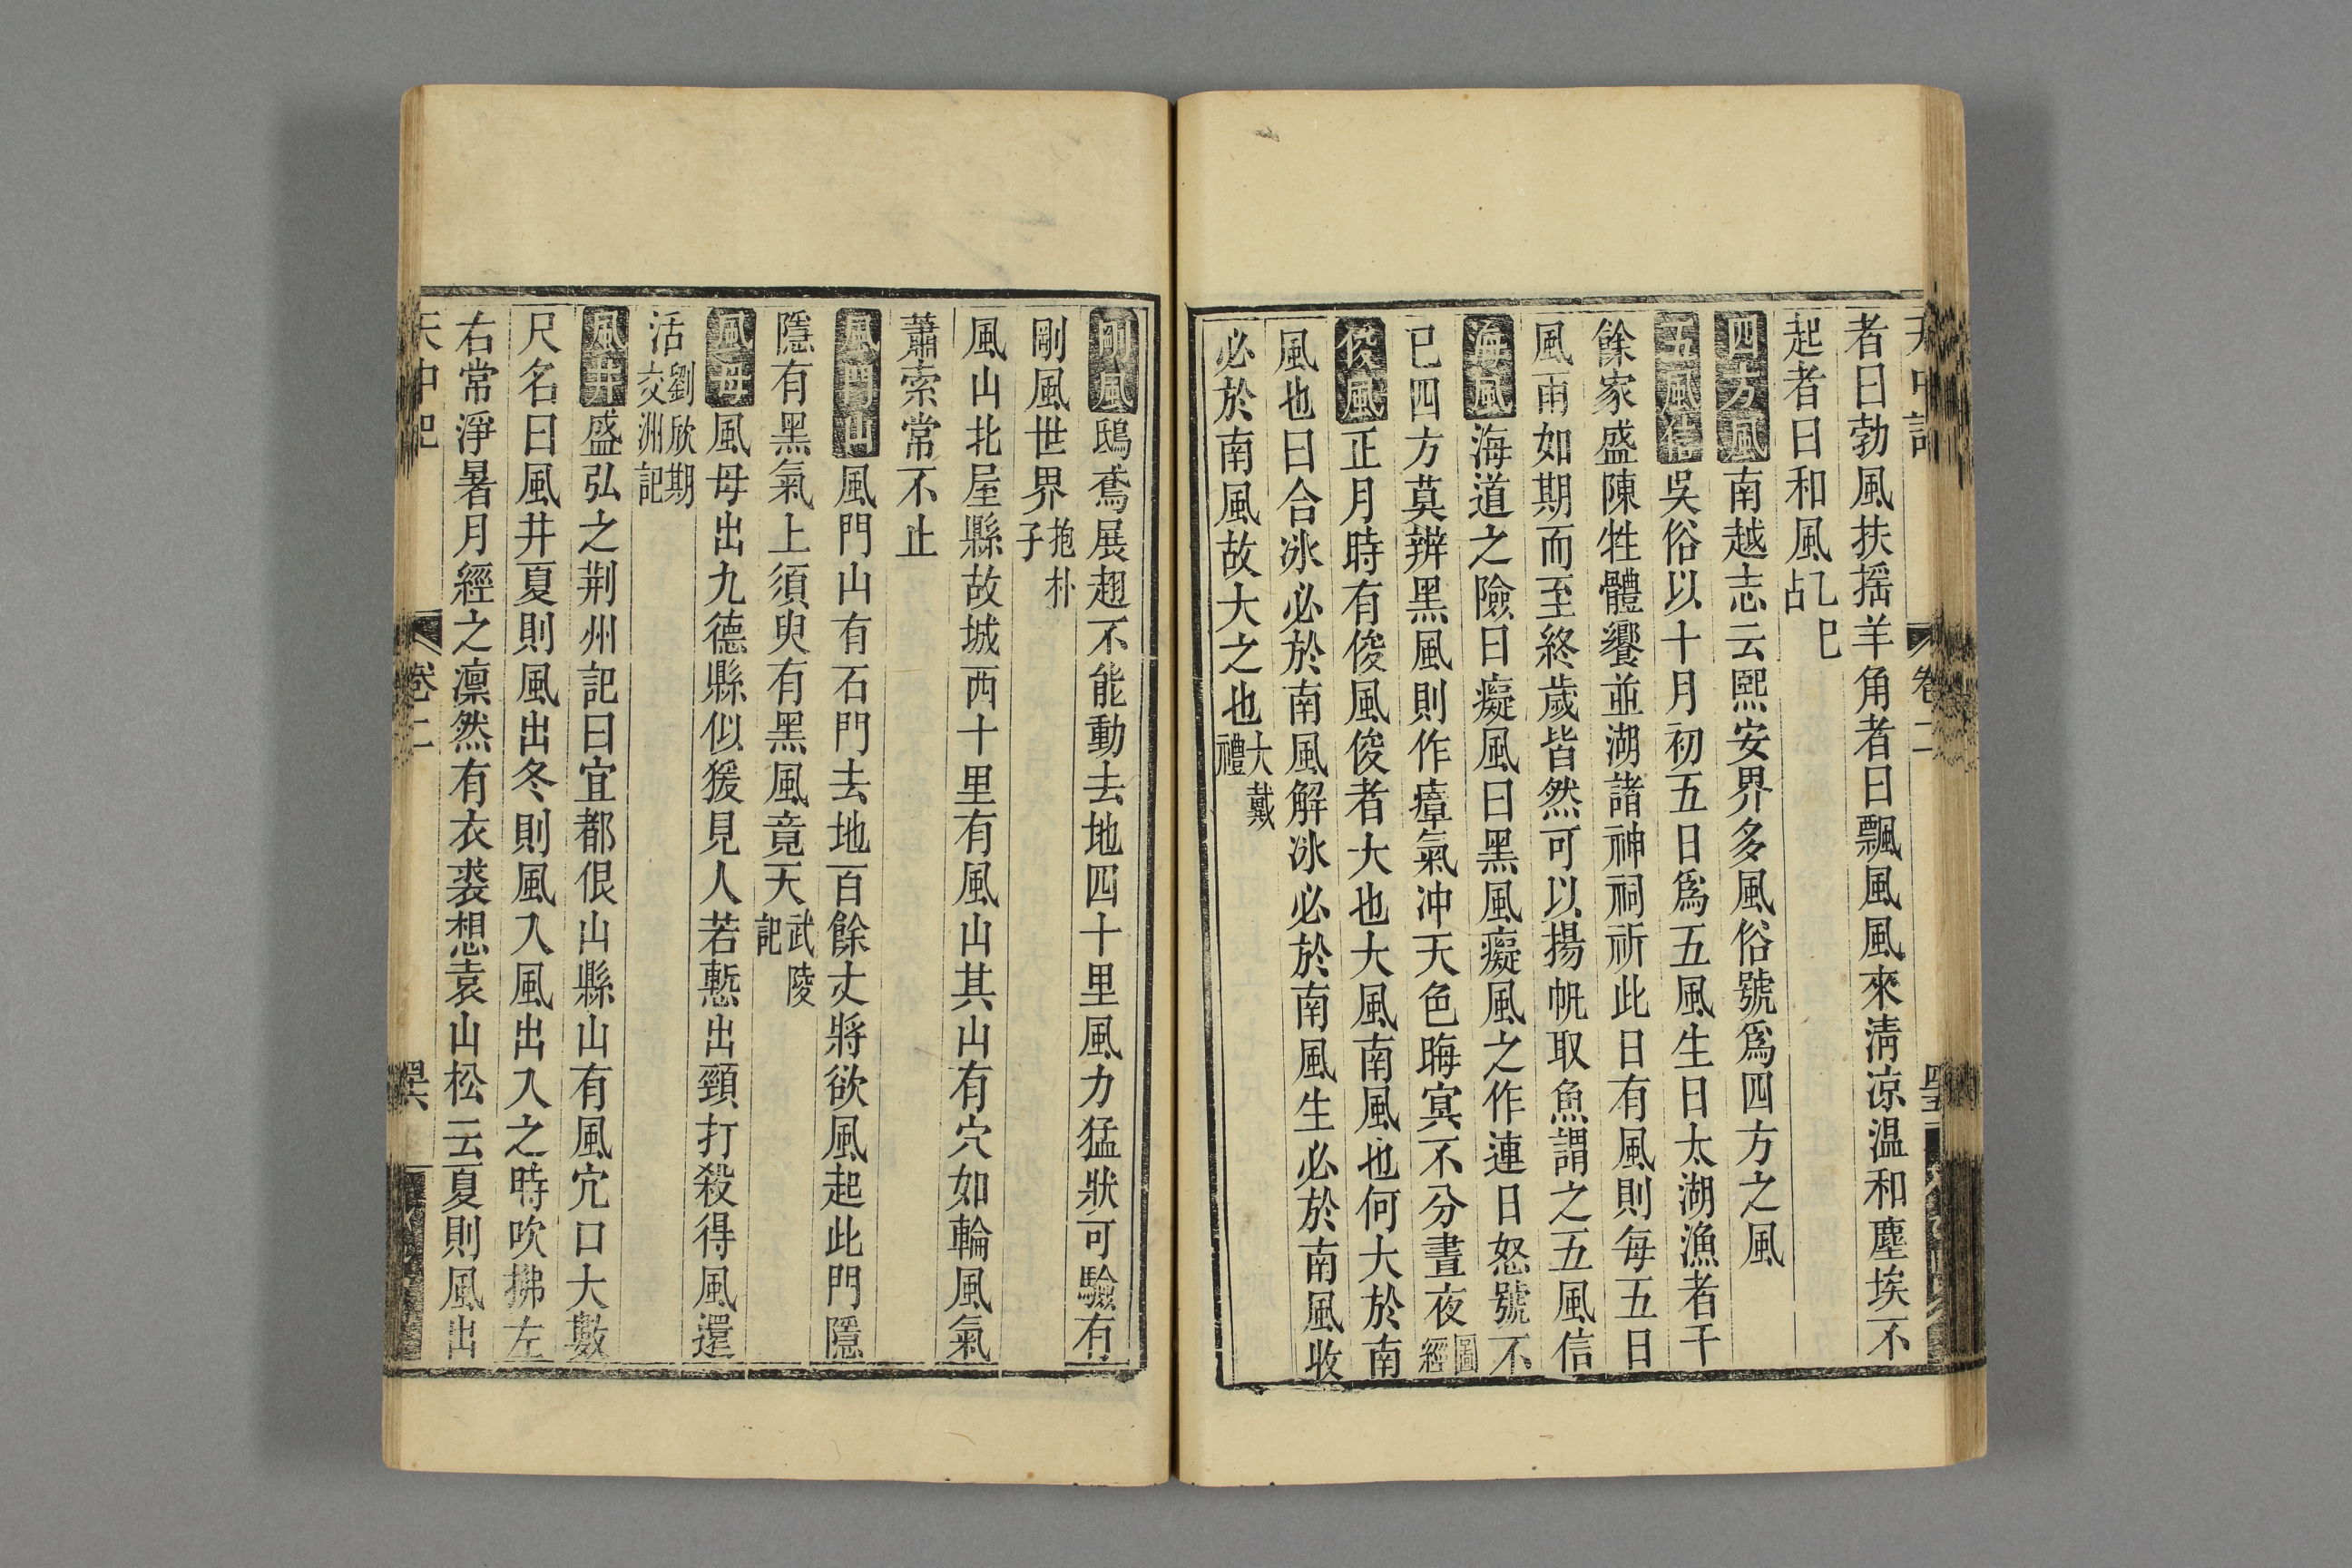 天中記 卷二
者曰勃風扶搖羊角者曰飄風風來淸涼温和塵埃不
起者曰和風乙巳占
四方風南越志云熙安界多風俗號爲四方之風
五風信吳俗以十月初五日爲五風生日太湖漁者千
餘家盛陳牲體饗並湖諸神祠祈此日有風則每五日
風雨如期而至終歲皆然可以揚帆取魚謂之五風信
海風海道之險曰癡風曰黑風癡風之作連日怒號不
已四方莫辨黑風則作瘴氣冲天色晦冥不分晝夜圖經
俊風正月時有俊風俊者大也大風南風也何大於南
風也曰合冰必於南風解冰必於南風生必於南風收
必於南風故大之也大戴禮
剛風鴟鳶展翅不能動去地四十里風力猛狀可驗有
剛風世界抱朴子
風山北屋縣故城西十里有風山其山有穴如輪風氣
蕭索常不止
風門山風門山有石門去地百餘丈將欲風起此門隱
隱有黑氣上須臾有黑風竟天武陵記
風母風母出九德縣似猨見人若慙出頸打殺得風還
活劉欣期交洲記
風井盛弘之荆州記曰宜都佷山縣山有風穴口大數
尺名曰風井夏則風出冬則風入風出入之時吹拂左
右常淨暑月經之凛然有衣裘想袁山松云夏則風出
天中記 卷二